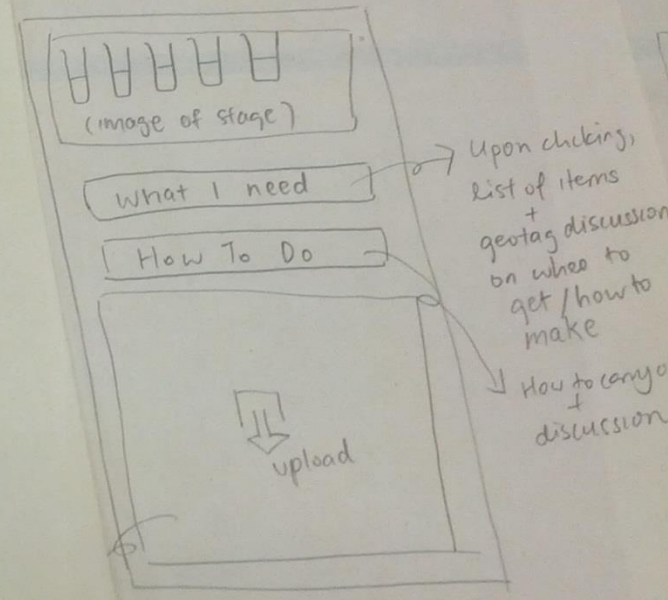 (image of stage)
What I need
How To Do
upload
Upon clicking,
list of items
+
geotag discussion
on where to
get / how to
make
How to carry o
+
discussion